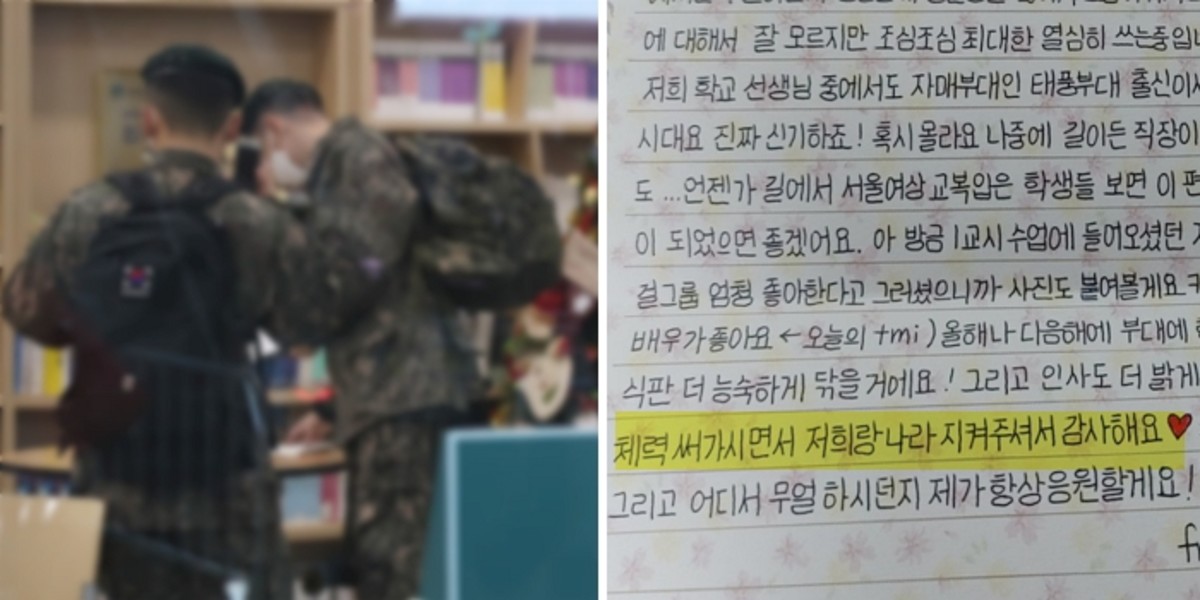 에 대해서 잘 모르지만 조심조심 최대한 열심히 쓰는중입니
저희 학교 선생님 중에서도 자매부대인 태풍부대 출신이
시대요 진짜 신기하죠! 혹시 몰라요 나중에 길이든 직장이
도...언젠가 길에서 서울여상 교복입은 학생들 보면 이 편
이 되었으면 좋겠어요. 아 방금 1교시 수업에 들어오셨던
걸그룹 엄청 좋아한다고 그러셨으니까 사진도 붙여볼게요
배우가 좋아요 ← 오늘의 tmi) 올해나 다음해에 부대에
식판 더 능숙하게 닦을 거에요! 그리고 인사도 더 밝게
체력 써가시면서 저희랑 나라 지켜주셔서 감사해요♥
그리고 어디서 무얼 하시던지 제가 항상 응원할게요!